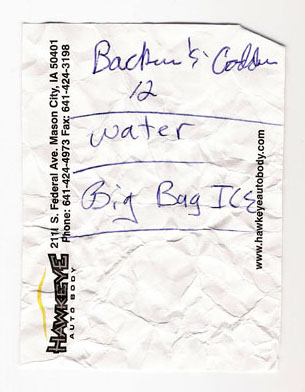 12
water
Big Bag ICE
HAWKEYE
AUTO BODY
2111 S. Federal Ave. Mason City, IA 50401
Phone: 641-424-4973 Fax: 641-424-3198
www.hawkeyeautobody.com